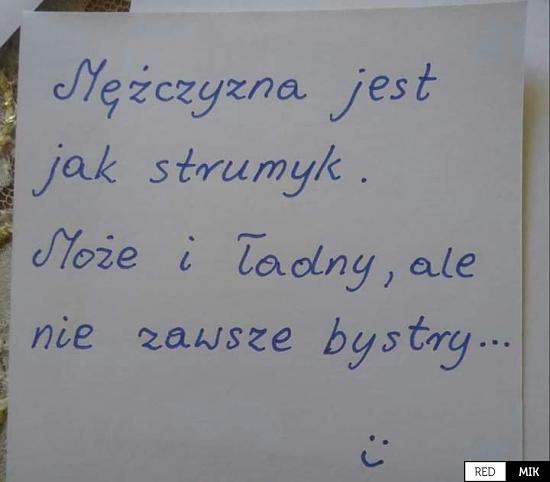 Mężczyzna jest
jak strumyk.
Może i ładny, ale
nie zawsze bystry...
RED MIK